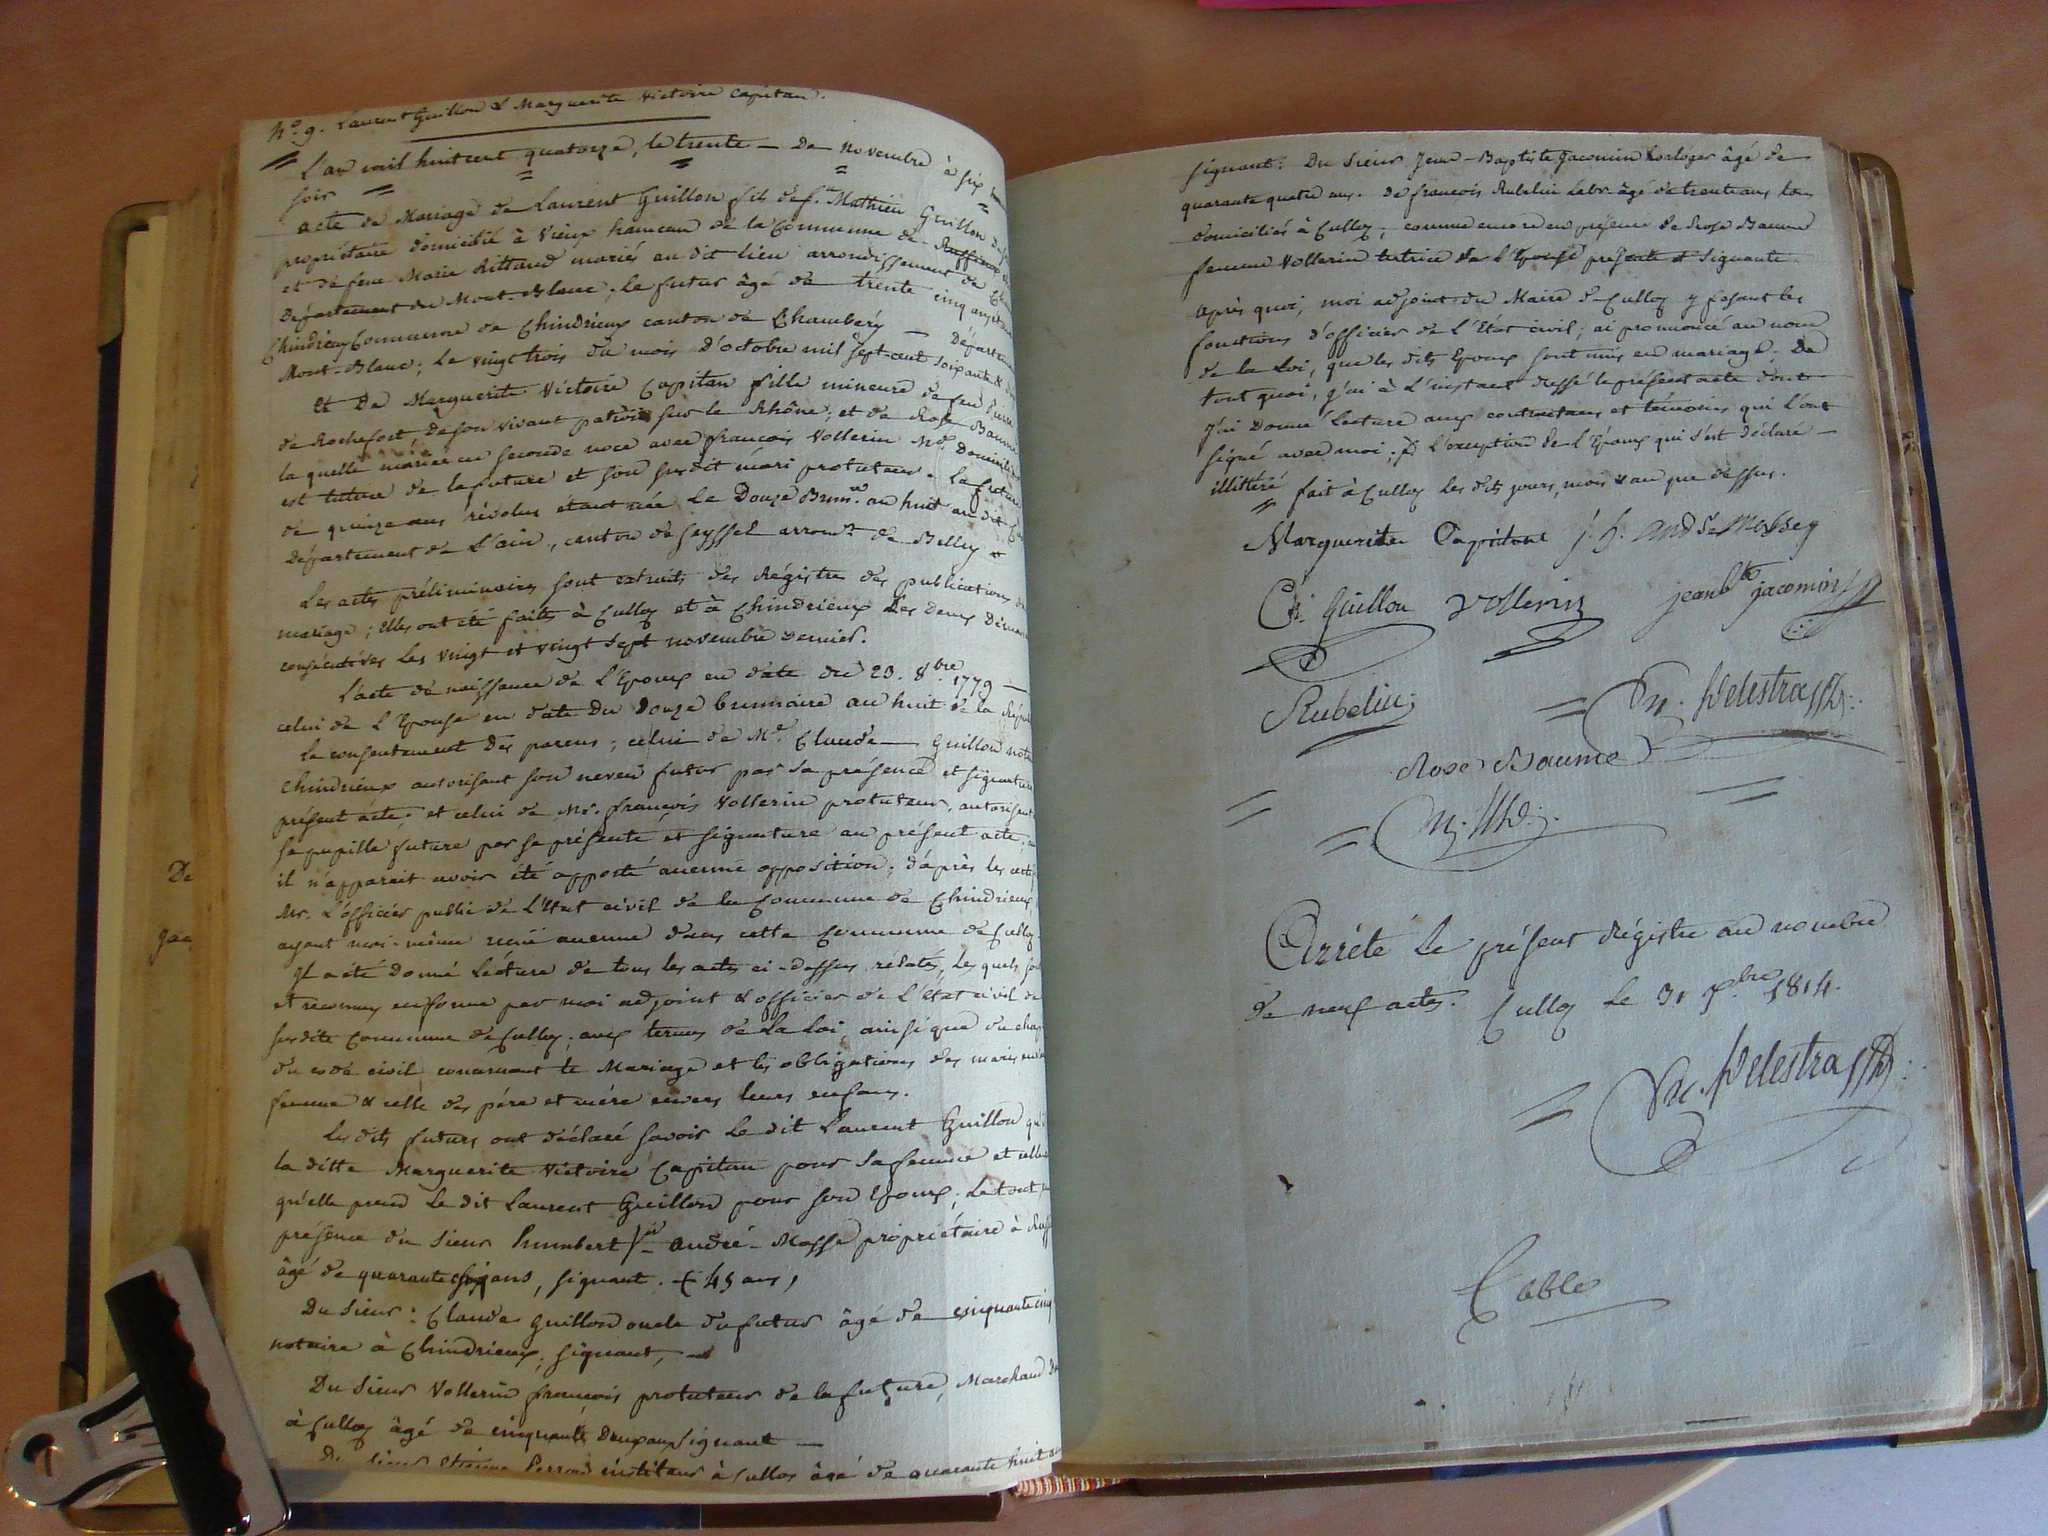 De
Jac
N.o 9. Laurent Guillon & Marguerite Victoire Capitan.
L'an mil huit cent quatorze, le trente — De Novembre à six
soir
acte de Mariage de Laurent Guillon fils de f. Mathieu Guillon
propriétaire domicilié à Vieux hameau de la Commune de Ruffieux
et de feue Marie Rittaud mariés au dit lieu arrondissement de
Département du Mont-Blanc; le futur âgé de trente cinq ans
Chindrieux Commune de Chindrieux canton de Chambery — Départem
Mont-Blanc; le vingt trois du mois d'octobre mil sept-cent soixante &
Et De Marguerite Victoire Capitan fille mineure de feu Pierre
de Rochefort de son vivant patron sur le Rhône; et de Rose Baume
la quelle mariée en seconde noce avec françois Vollerin M.d Domicilié
est tutrice de la future et son susdit mari protuteur. La future
de quinze ans révolus étant née le Douze Brum.re an huit au dit
département de L'ain, canton de Seyssel arrond.t de Belley
Les actes préliminaires sont extraits des Régistres des publications de
mariage; Elles ont été faites à Culloz et à Chindrieux les deux Diman
consécutives les vingt et vingt sept novembre dernier.
L'acte de naissance de l'Epoux en date du 23. 8.bre 1779 —
celui de l'Epouse en date Du Douze brumaire an huit de la Répu
Le consentement des parens; celui de M.e Claude — Guillon not
Chindrieux autorisant son neveu futur par sa présence et signature
présent acte; et celui de Mr. françois Vollerin protuteur, autorisant
sa pupille future par sa présente et signature au présent acte;
il n'apparait avoir été apposté aucune opposition; d'après les certi
Mr. L'officier public de L'Etat civil de la Commune de Chindrieux
ayant moi-même reçu aucune dans cette Commune de Culloz.
Il a été Donné Lecture de tous les actes ci-dessus rélatés, les quels son
et reconnus en forme par moi adjoint & officier de l'Etat civil de
susdite Commune de Culloz; aux termes de La Loi ainsi que du chap
du code civil concernant le Mariage et les obligations des maris
femme & celle des père et mère envers leurs enfans.
Les dits futurs ont déclaré savoir le dit Laurent Guillon qu'
la ditte Marguerite Victoire Capitan pour sa femme et celle
qu'elle prend le dit Laurent Guillon pour son Epoux; Le tout
présence du Sieur humbert André-Masse propriétaire à Ruff
âgé de quarante ans, signant. (45 ans)
Du Sieur: Claude Guillon oncle du futur âgé de cinquante cinq
notaire à Chindrieux; signant,
Du Sieur Vollerin françois protuteur de la future, Marchand
à Culloz âgé de cinquante Deux ans signant —
Du Sieur Etienne Perroud instituteur à Culloz âgé de quarante huit
signant: Du Sieur Jean-Baptiste Jacomin horloger âgé de
quarante quatre ans. De françois Rubelin Labr âgé de trente ans, tous
domiciliés à Culloz; comme encore en présence de Rose Baume
femme Vollerin tutrice de l'Epouse présente et signante.
Après quoi, moi adjoint du Maire de Culloz y fesant les
fonctions d'officier de l'Etat civil; ai prononcé au nom
de la Loi, que les dits Epoux sont unis en mariage; De
tout quoi, j'ai à l'instant dressé le présent acte dont
j'ai donné Lecture aux contractans et témoins qui l'ont
signé avec moi; à l'exception de l'Epoux qui s'est déclaré —
illittéré fait à Culloz les dits jours, mois & an que dessus.
Marguerite Capitant
Guillon Vollerin jean bte jacomin
Rubelin Pelestra
Rose Baume
Arrêté le présent Régistre au nombre
de neuf actes. Culloz le 31 Xbre 1814.
Pelestra
Table